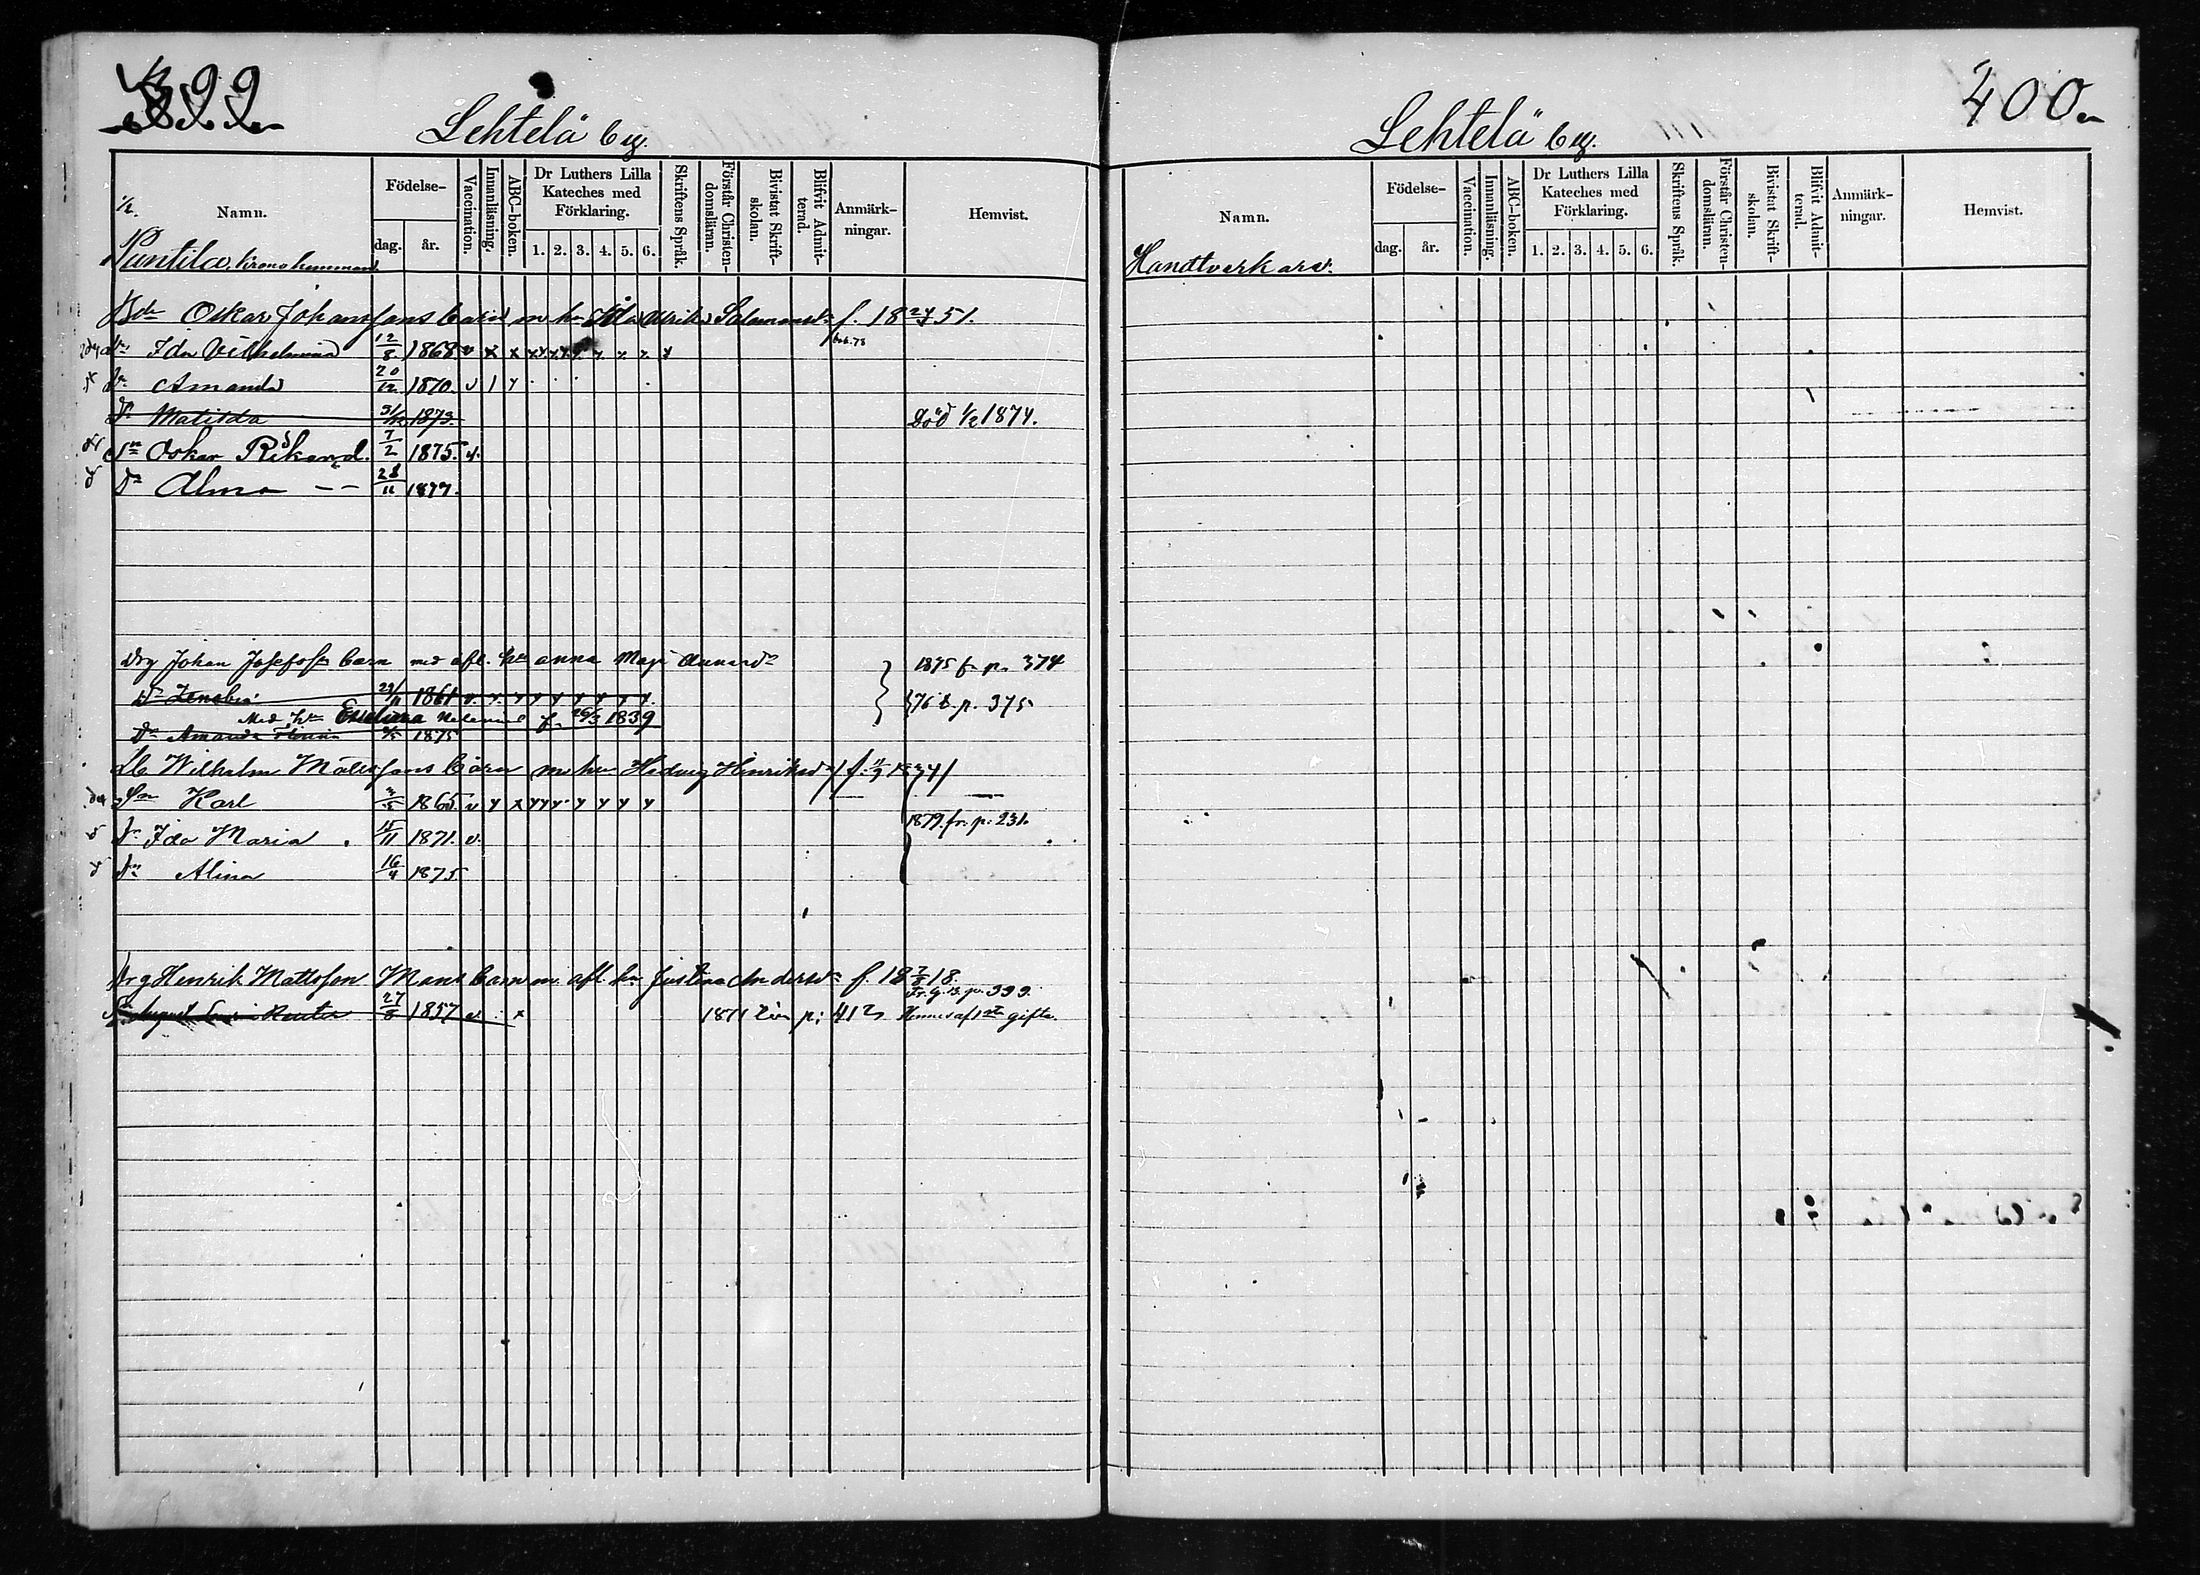 399
Lehtelä by.
Namn.
Födelse-
dag.
år.
Vaccination.
Innanläsning.
ABC-boken.
Dr Luthers Lilla
Kateches med
Förklaring.
1. 2. 3. 4. 5. 6.
Skriftens Språk.
Förstår Christen-
domsläran.
Bivistat Skrift-
skolan.
Blifvit Admit-
terad.
Anmärk-
ningar.
Hemvist.
Puntila, kronohemmant
Bdn Oskar Johanssons barn m hu Ulrika Salomonsdr f. 18 51.
dr Ida Vilhelmina 12/8 1868 v x x
dr Amanda 20/12 1870. v
dr Matilda 31/12 1873. Död 1/2 1874.
Sn Oskar Rikard. 7/2 1875. v.
dr Alma — — 28/11 1877.
Drg Johan Josefss barn med afl. hu Anna Maja
1875 fr p. 374
dr 1861
76 t. p. 375
Med hu f. 26/3 1839
dr Amanda 1875
Wilhelm Mattssons barn m hu Hedvig Henriksdr
Sn Karl 1865. v
1879. fr. p. 231.
dr Ida Maria 15/11 1871. v.
dr Alina 16/4 1875
Drg Henrik Mattsson Mans barn m. afl. hu Justina Andersdr f. 18 18.
p. 399.
Sn August 27/8 1857 v. x 1871 p: 412 gifte.
400
Lehtelä by.
Namn.
Födelse-
dag.
år.
Vaccination.
Innanläsning.
ABC-boken.
Dr Luthers Lilla
Kateches med
Förklaring.
1. 2. 3. 4. 5. 6.
Skriftens Språk.
Förstår Christen-
domsläran.
Bivistat Skrift-
skolan.
Blifvit Admit-
terad.
Anmärk-
ningar.
Hemvist.
Handtverkare.